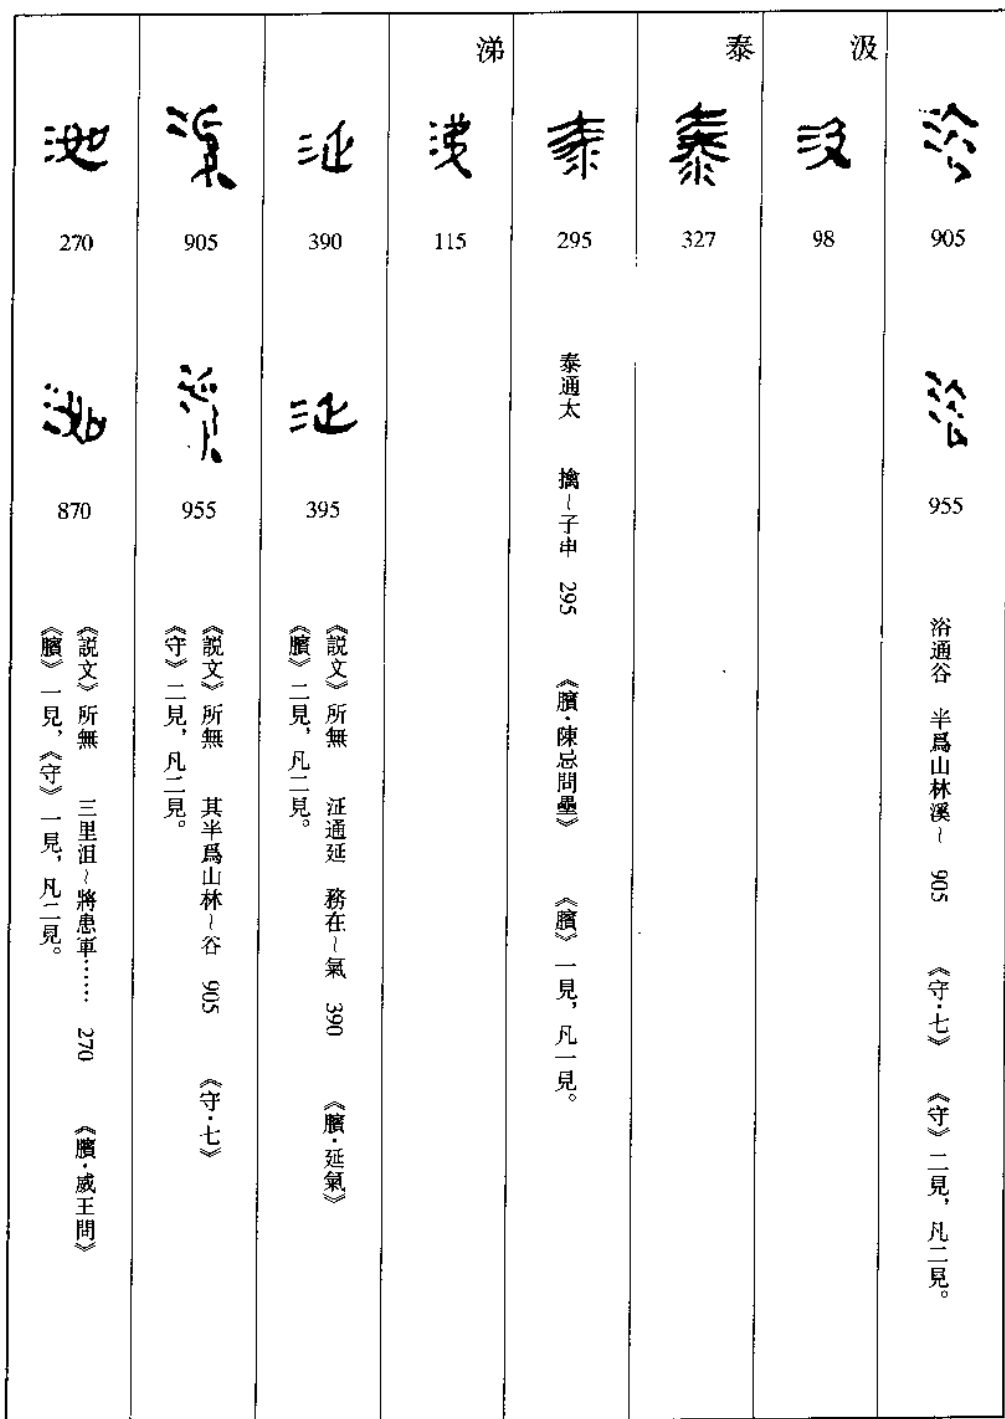 905
955
浴通谷 半爲山林溪~ 905 《守·七》 《守》二見，凡二見。
汲
98
泰
327
295
泰通太 擒~子申 295 《臏·陳忌問壘》 《臏》一見，凡一見。
涕
115
390
395
《説文》所無 㳌通延 務在~氣 390 《臏·延氣》
《臏》二見，凡二見。
905
955
《説文》所無 其半爲山林~谷 905 《守·七》
《守》二見，凡二見。
270
870
《説文》所無 三里沮~將患軍…… 270 《臏·威王問》
《臏》一見，《守》一見，凡二見。